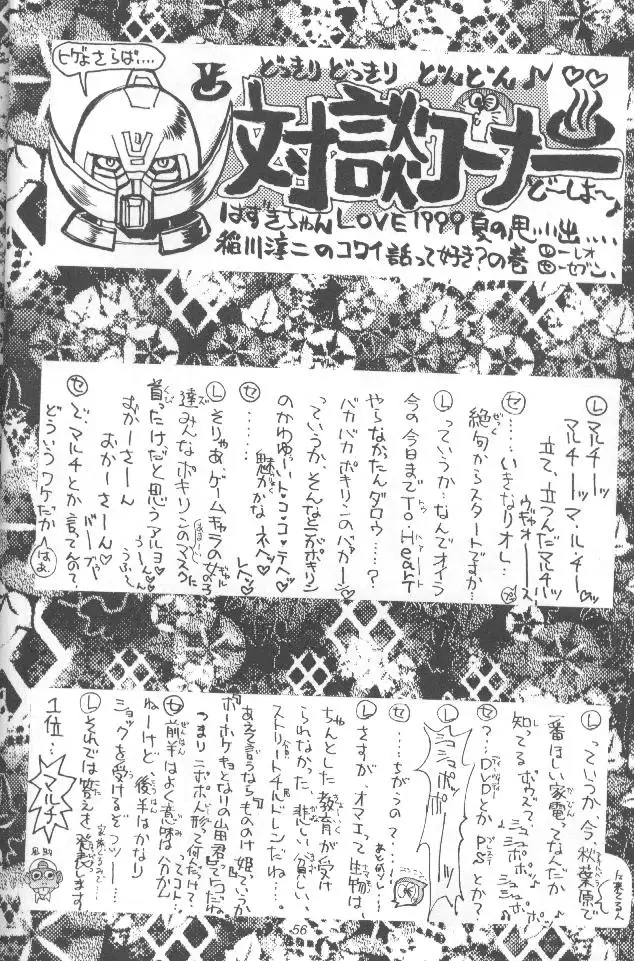 ヒゲよさらば‥‥
どっきり どっきり どんどん♪
対談コーナー
どーしはー♪
はずきちゃんLOVE1999夏の思い出‥‥
稲川淳二のコワイ話って好き？の巻
Ⓛーレオ
㋝ーセブン
Ⓛ マルチーッ マ・ル・チーッ
マルチーッ
立て、立つんだマルチッ
ウギャオーース
㋝ ‥‥いきなりオレ‥‥
絶句からスタートですか‥‥
Ⓛ っていうか‥なんでオイラ
今の今日までTo Heart
やらなかったんダロウ‥‥？
バカバカポキリンのバカー♡
っていうか、そんなとこがポキリン
のかわゆーいト・コ・ロ・テ・ヘ♡
魅かかな ネヘ♡
㋝ ‥‥‥
Ⓛ そりゃあ、ゲームキャラの女の子
達みんなポキリンのマスクに
首ったけだと思うアルヨ♡
おかーさーん
おかーさーん♡
㋝ で、マルチとか言ってんので、
どういうワケだか
はぁ
Ⓛ っていうか今 秋葉原で
一番ほしい家電ってなんだか
知ってるボウズ？
㋝ ？‥‥DVDとか PSとか？
Ⓛ シュシュポッポー
㋝ ‥‥ちがうので‥‥
Ⓛ さすが、オマエって生物は、
ちゃんとした教育が受け
られなかった、悲しい貧しい
ストリートチルドレンだね‥‥。
あえて言うならもののけ姫っていうか
ホーホケキョとなりの山田君ってつだね。
つまりニポポ人形って何だっけ？
㋝ 前半はよく意味は分かん
ねーけど 後半はかなり
ショックを受けるぞっッー‥‥
Ⓛ それでは答えを発表します
1位‥‥
マルチ
56